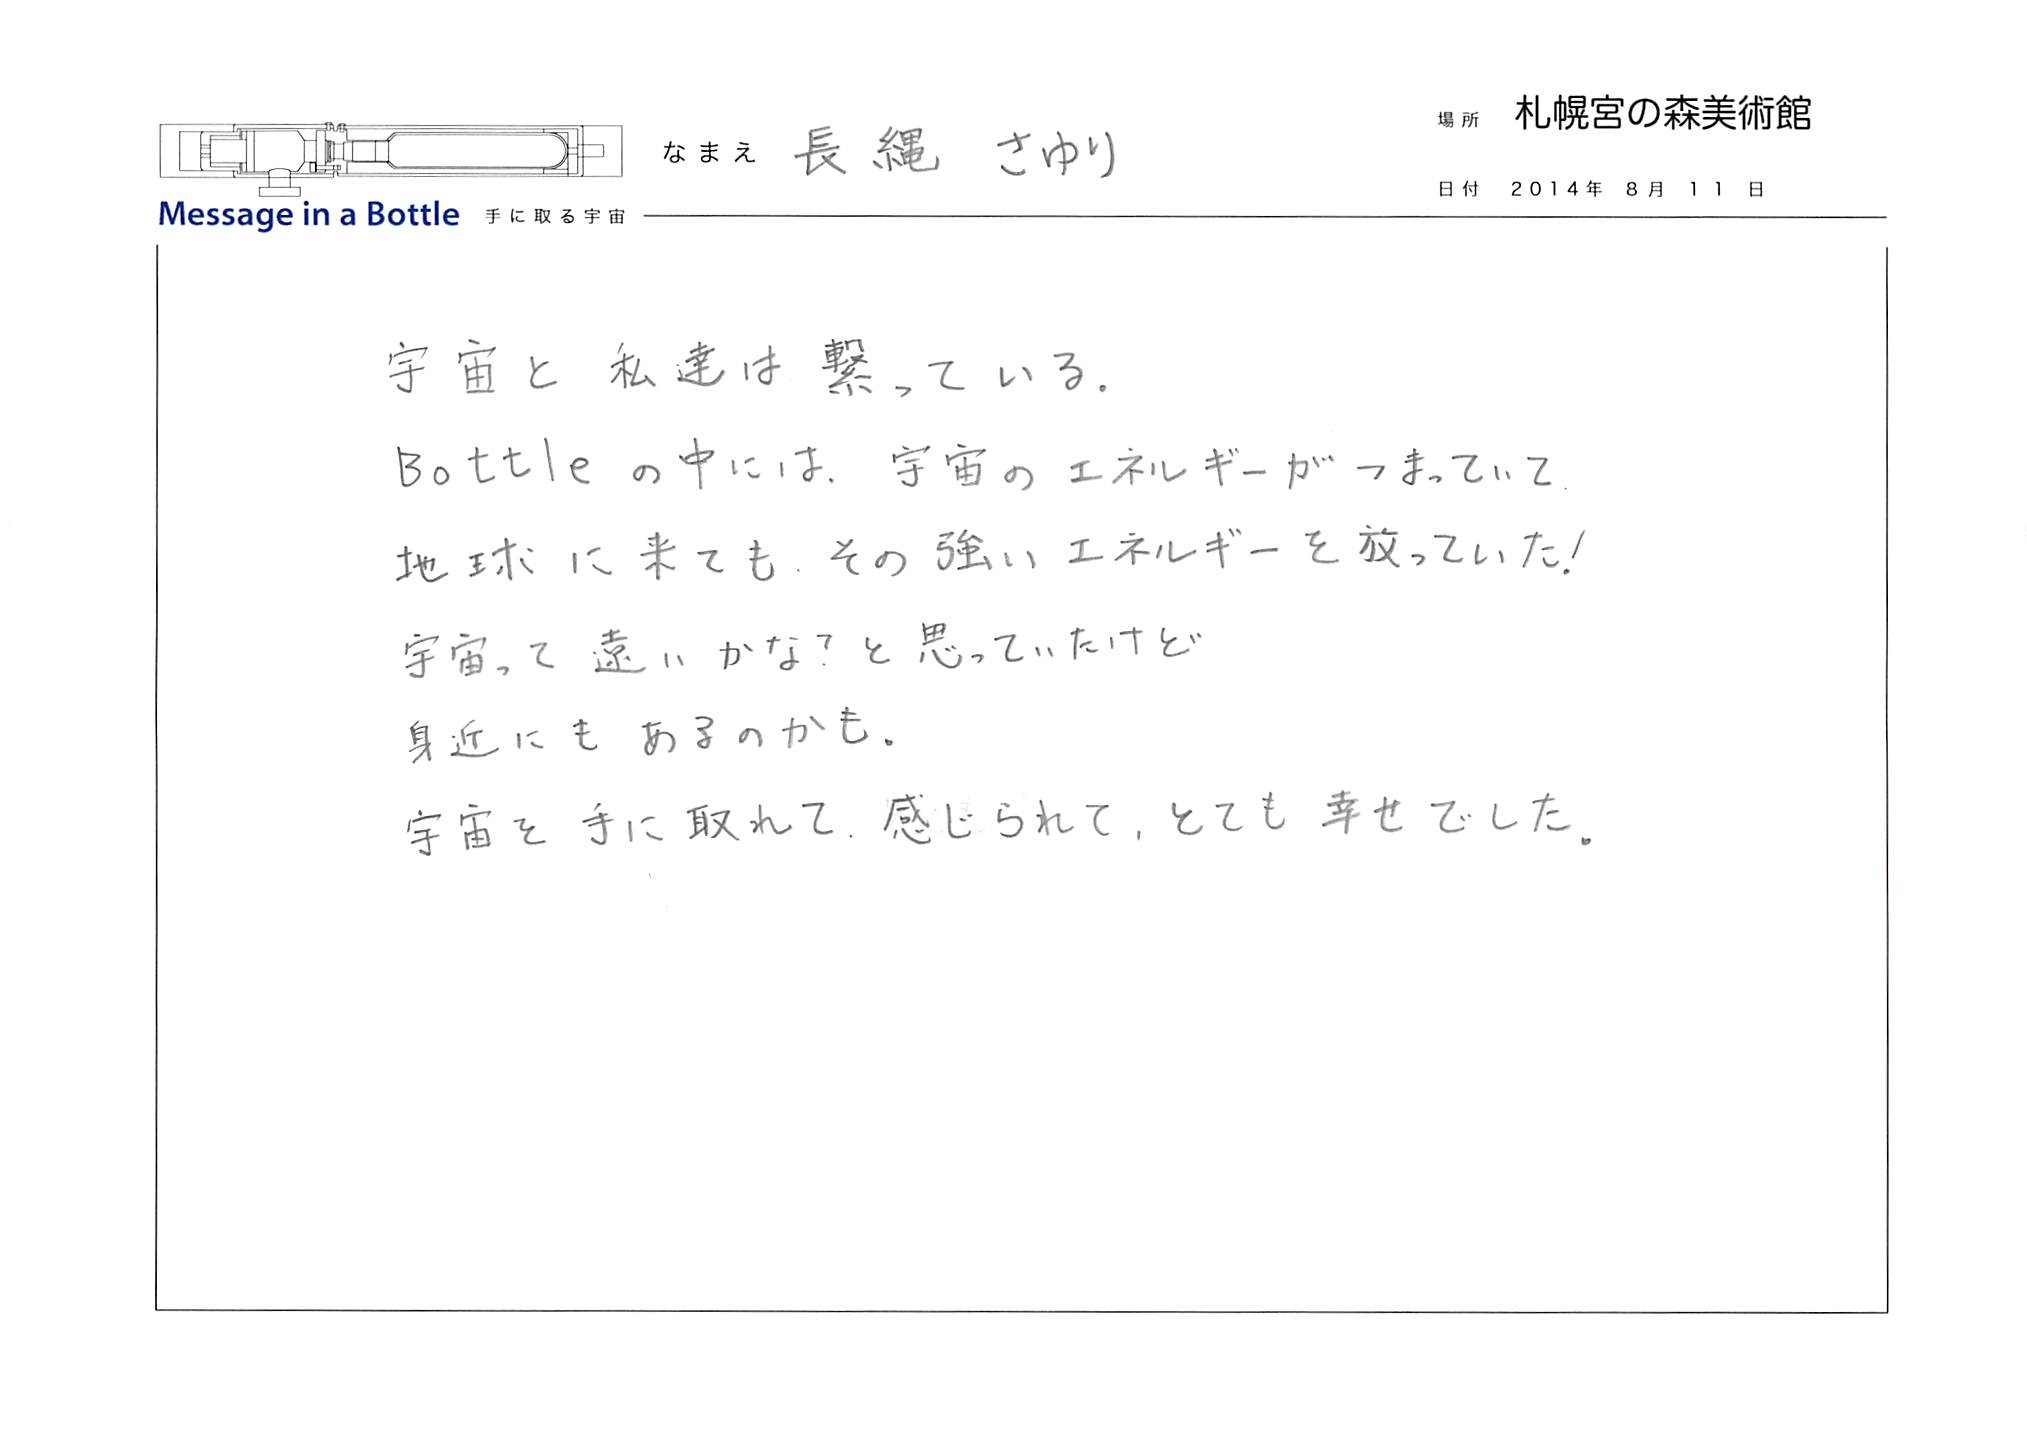 場所 札幌宮の森美術館
なまえ 長縄 さゆり
日付 2014年 8月 11日
Message in a Bottle 手に取る宇宙
宇宙と私達は繋っている。
Bottleの中には、宇宙のエネルギーがつまっていて、
地球に来ても、その強いエネルギーを放っていた!
宇宙って遠いかな?と思っていたけど
身近にもあるのかも。
宇宙を手に取れて、感じられて、とても幸せでした。